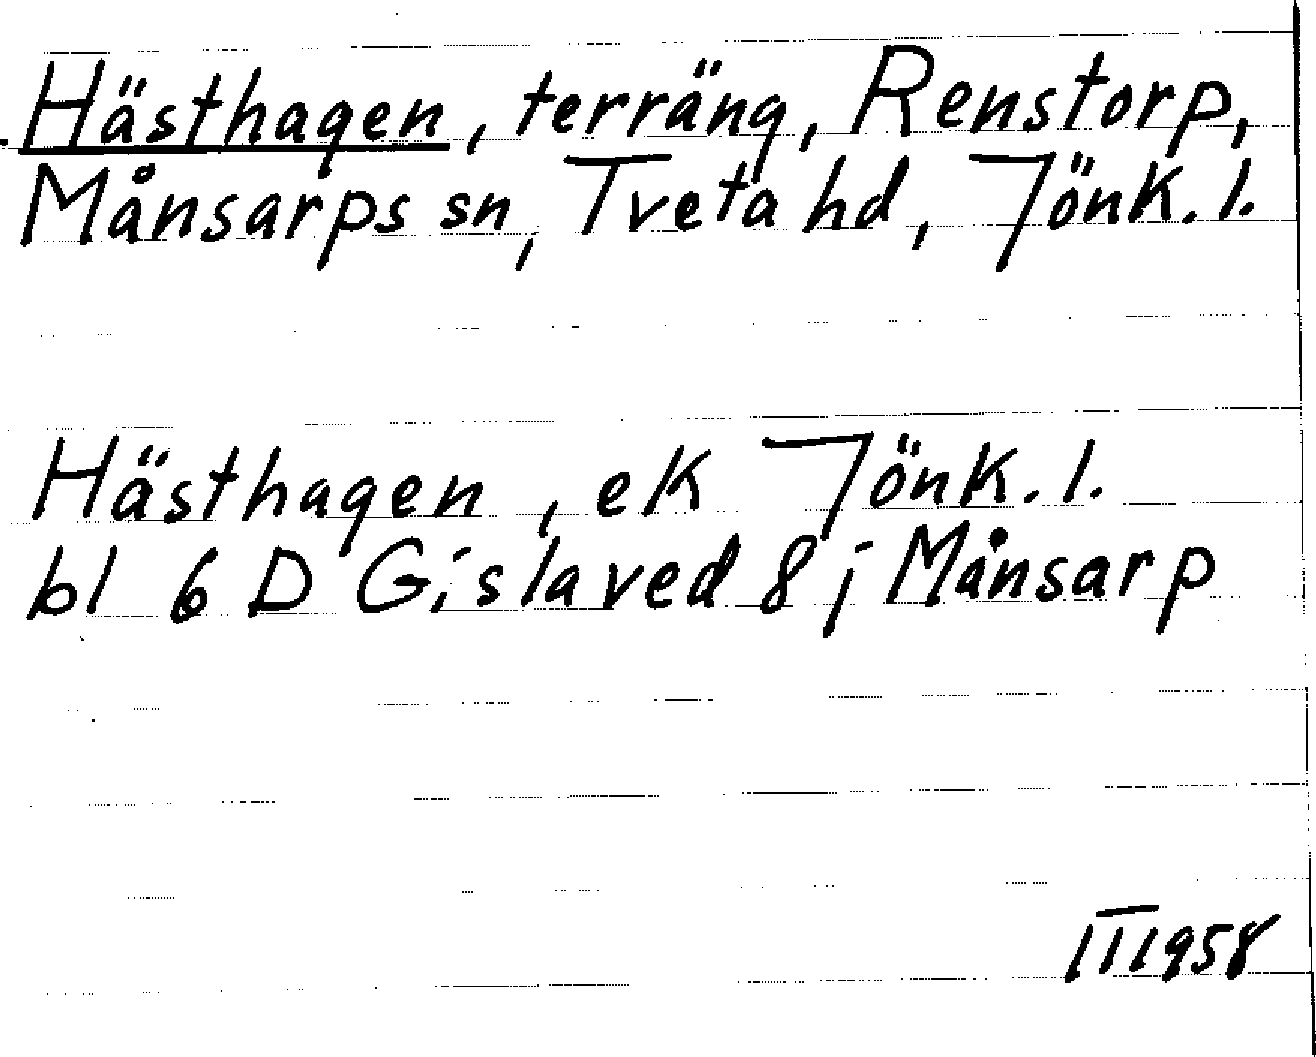 Hästhagen, terräng, Renstorp,
Månsarps sn, Tveta hd, Jönk. l.
Hästhagen, ek Jönk. l.
bl 6 D Gislaved 8 j Månsarp
IT 1958